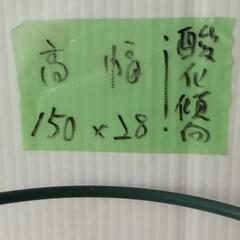 高 幅
150×28
酸化傾向